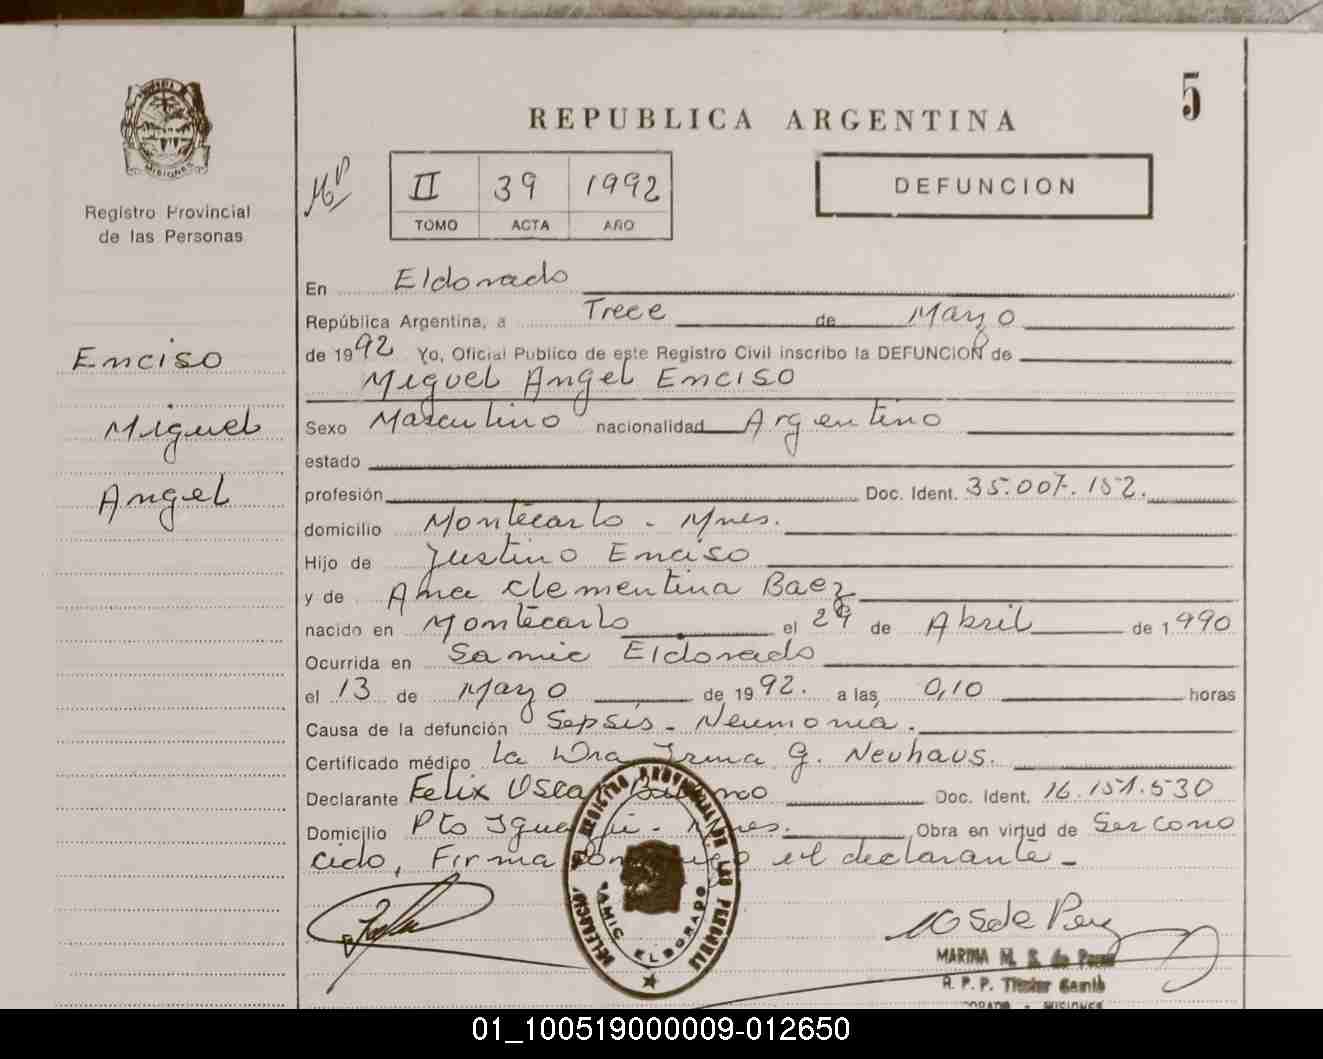 5
REPUBLICA ARGENTINA
MISIONES
Registro Provincial
de las Personas
II 39 1992
TOMO ACTA AÑO
DEFUNCION
Enciso
Miguel
Angel
En Eldorado
República Argentina, a Trece de Mayo
de 1992 Yo, Oficial Publico de este Registro Civil inscribo la DEFUNCION de
Miguel Angel Enciso
Sexo Masculino nacionalidad Argentino
estado
profesión Doc. Ident. 35.007.152.
domicilio Montecarlo - Mnes.
Hijo de Justino Enciso
y de Ana Clementina Baez
nacido en Montecarlo el 29 de Abril de 1990
Ocurrida en Samic Eldorado
el 13 de Mayo de 1992. a las 0,10 horas
Causa de la defunción Sepsis - Neumonia.
Certificado médico La Dra Irma G. Neuhaus.
Declarante Felix Oscar Doc. Ident. 16.151.530
Domicilio Pto Iguazú - Mnes. Obra en virtud de Ser cono
cido, Firma conmigo el declarante -
DELEGACION REGISTRO PROVINCIAL DE LAS PERSONAS
SAMIC ELDORADO
MARINA M. S. de Perez
R. P. P. Titular Samic
ELDORADO - MISIONES
01_100519000009-012650